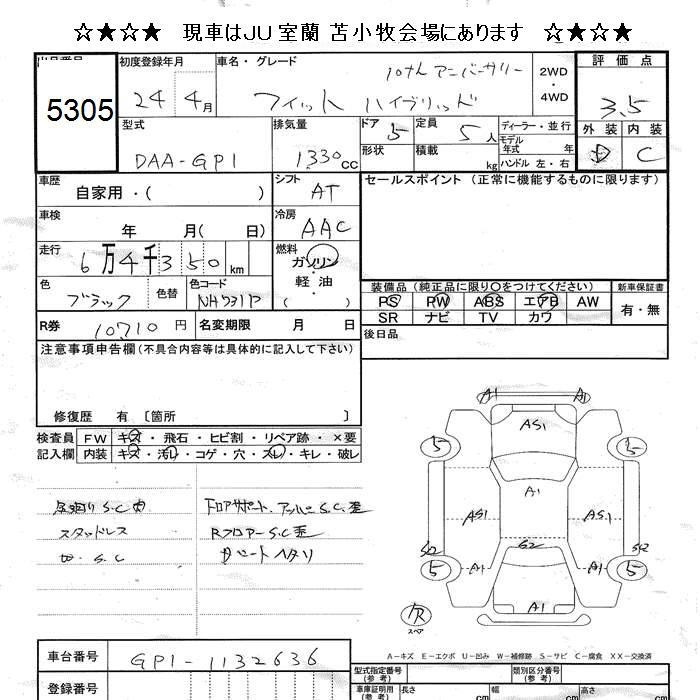 ☆★☆★ 現車はJU室蘭 苫小牧会場にあります ☆★☆★
5305
初度登録年月
24 4月
車名・グレード
10thアニバーサリー
フィット ハイブリッド
2WD
・
4WD
評価点
3.5
外装 内装
D C
型式
DAA-GP1
排気量
1330cc
ドア 5
定員 5人
形状
積載 kg
ディーラー・並行
モデル年式 年
ハンドル 左・右
車歴
自家用・( )
シフト
AT
車検
年 月( 日)
冷房
AAC
走行
6万4千350km
燃料
ガソリン
・
軽油
( )
色
ブラック
色替
色コード
NH731P
R券 10710円
名変期限 月 日
セールスポイント (正常に機能するものに限ります)
装備品(純正品に限り○をつけてください)
新車保証書
PS PW ABS エアB AW
有・無
SR ナビ TV カワ
後日品
注意事項申告欄(不具合内容等は具体的に記入して下さい)
修復歴 有 〔箇所 〕
検査員
記入欄
FW キズ・飛石・ヒビ割・リペア跡・×要
内装 キズ・汚れ・コゲ・穴・スレ・キレ・破レ
スタッドレス
S.C
ドロアサポート、アッパーS.C.歪
RフロアーS.C歪
シートヘタリ
A1 A1
AS1
5 5
A1
AS1 AS1
S2 S2 S2
5 A1 A1 5
A1
欠
スペア
A-キズ E-エクボ U-凹み W-補修跡 S-サビ C-腐食 XX-交換済
車台番号
GP1-1132636
登録番号
型式指定番号
(参考)
類別区分番号
(参考)
車庫証明用
(参考)
長さ cm
幅 cm
高さ cm